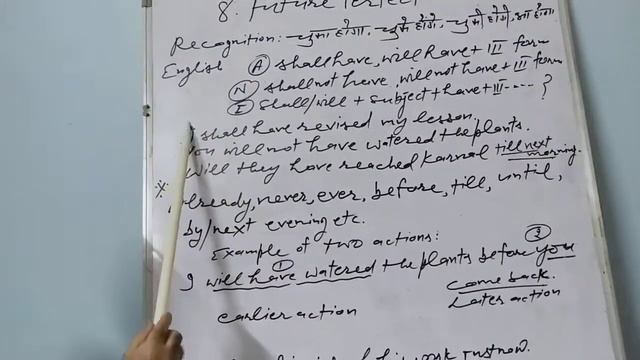 8. Future Perfect
Recognition: चुका होगा, चुके होंगे, चुकी होगी, आ होगा
English (A) shall have, will have + III form
(N) shall not have, will not have + III form
(I) Shall/will + subject + have + III ----- ?
I shall have revised my lesson.
You will not have watered the plants.
Will they have reached Karnal till next morning.
* Already, never, ever, before, till, until,
by/next evening etc.
Example of two actions:
① ②
I will have watered the plants before you
come back.
earlier action Later action
work just now.